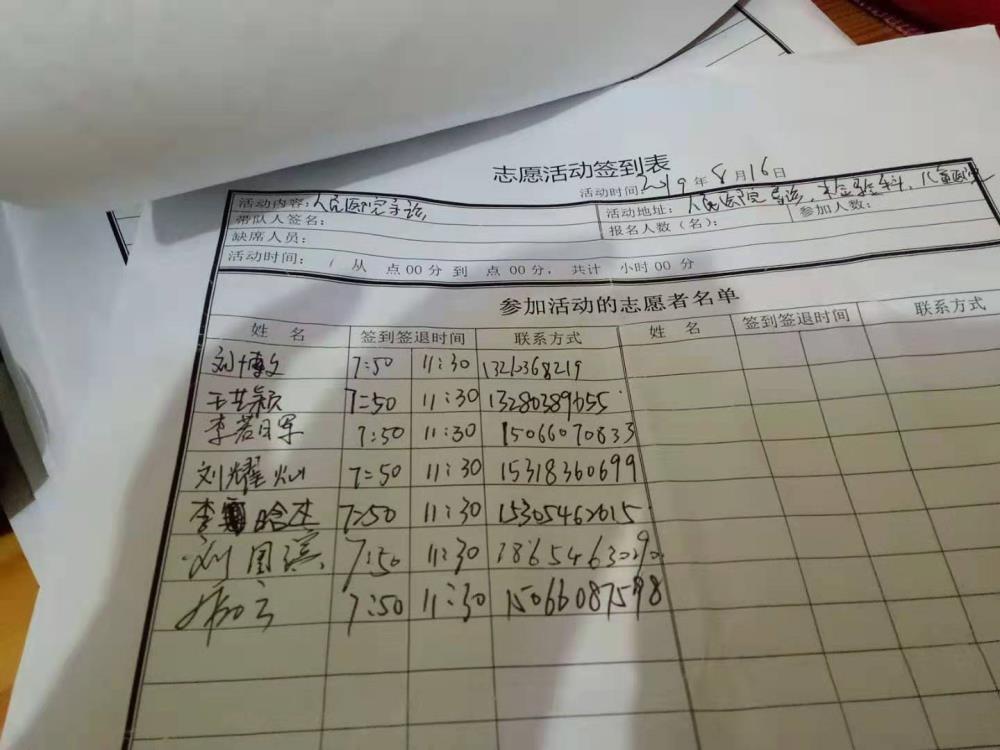 志愿活动签到表
活动时间 2019 年 8 月 16 日
活动内容：人民医院导诊 活动地址：人民医院导诊、
带队人签名： 报名人数（名）： 参加人数：
缺席人员：
活动时间： / 从 点00分 到 点00分，共计 小时00分
参加活动的志愿者名单
姓 名 签到签退时间 联系方式 姓 名 签到签退时间 联系方式
刘博文 7:50 11:30
7:50 11:30 13280389655
7:50 11:30 15066070833
刘耀灿 7:50 11:30 15318360699
7:50 11:30
刘 7:50 11:30
7:50 11:30 15066087598